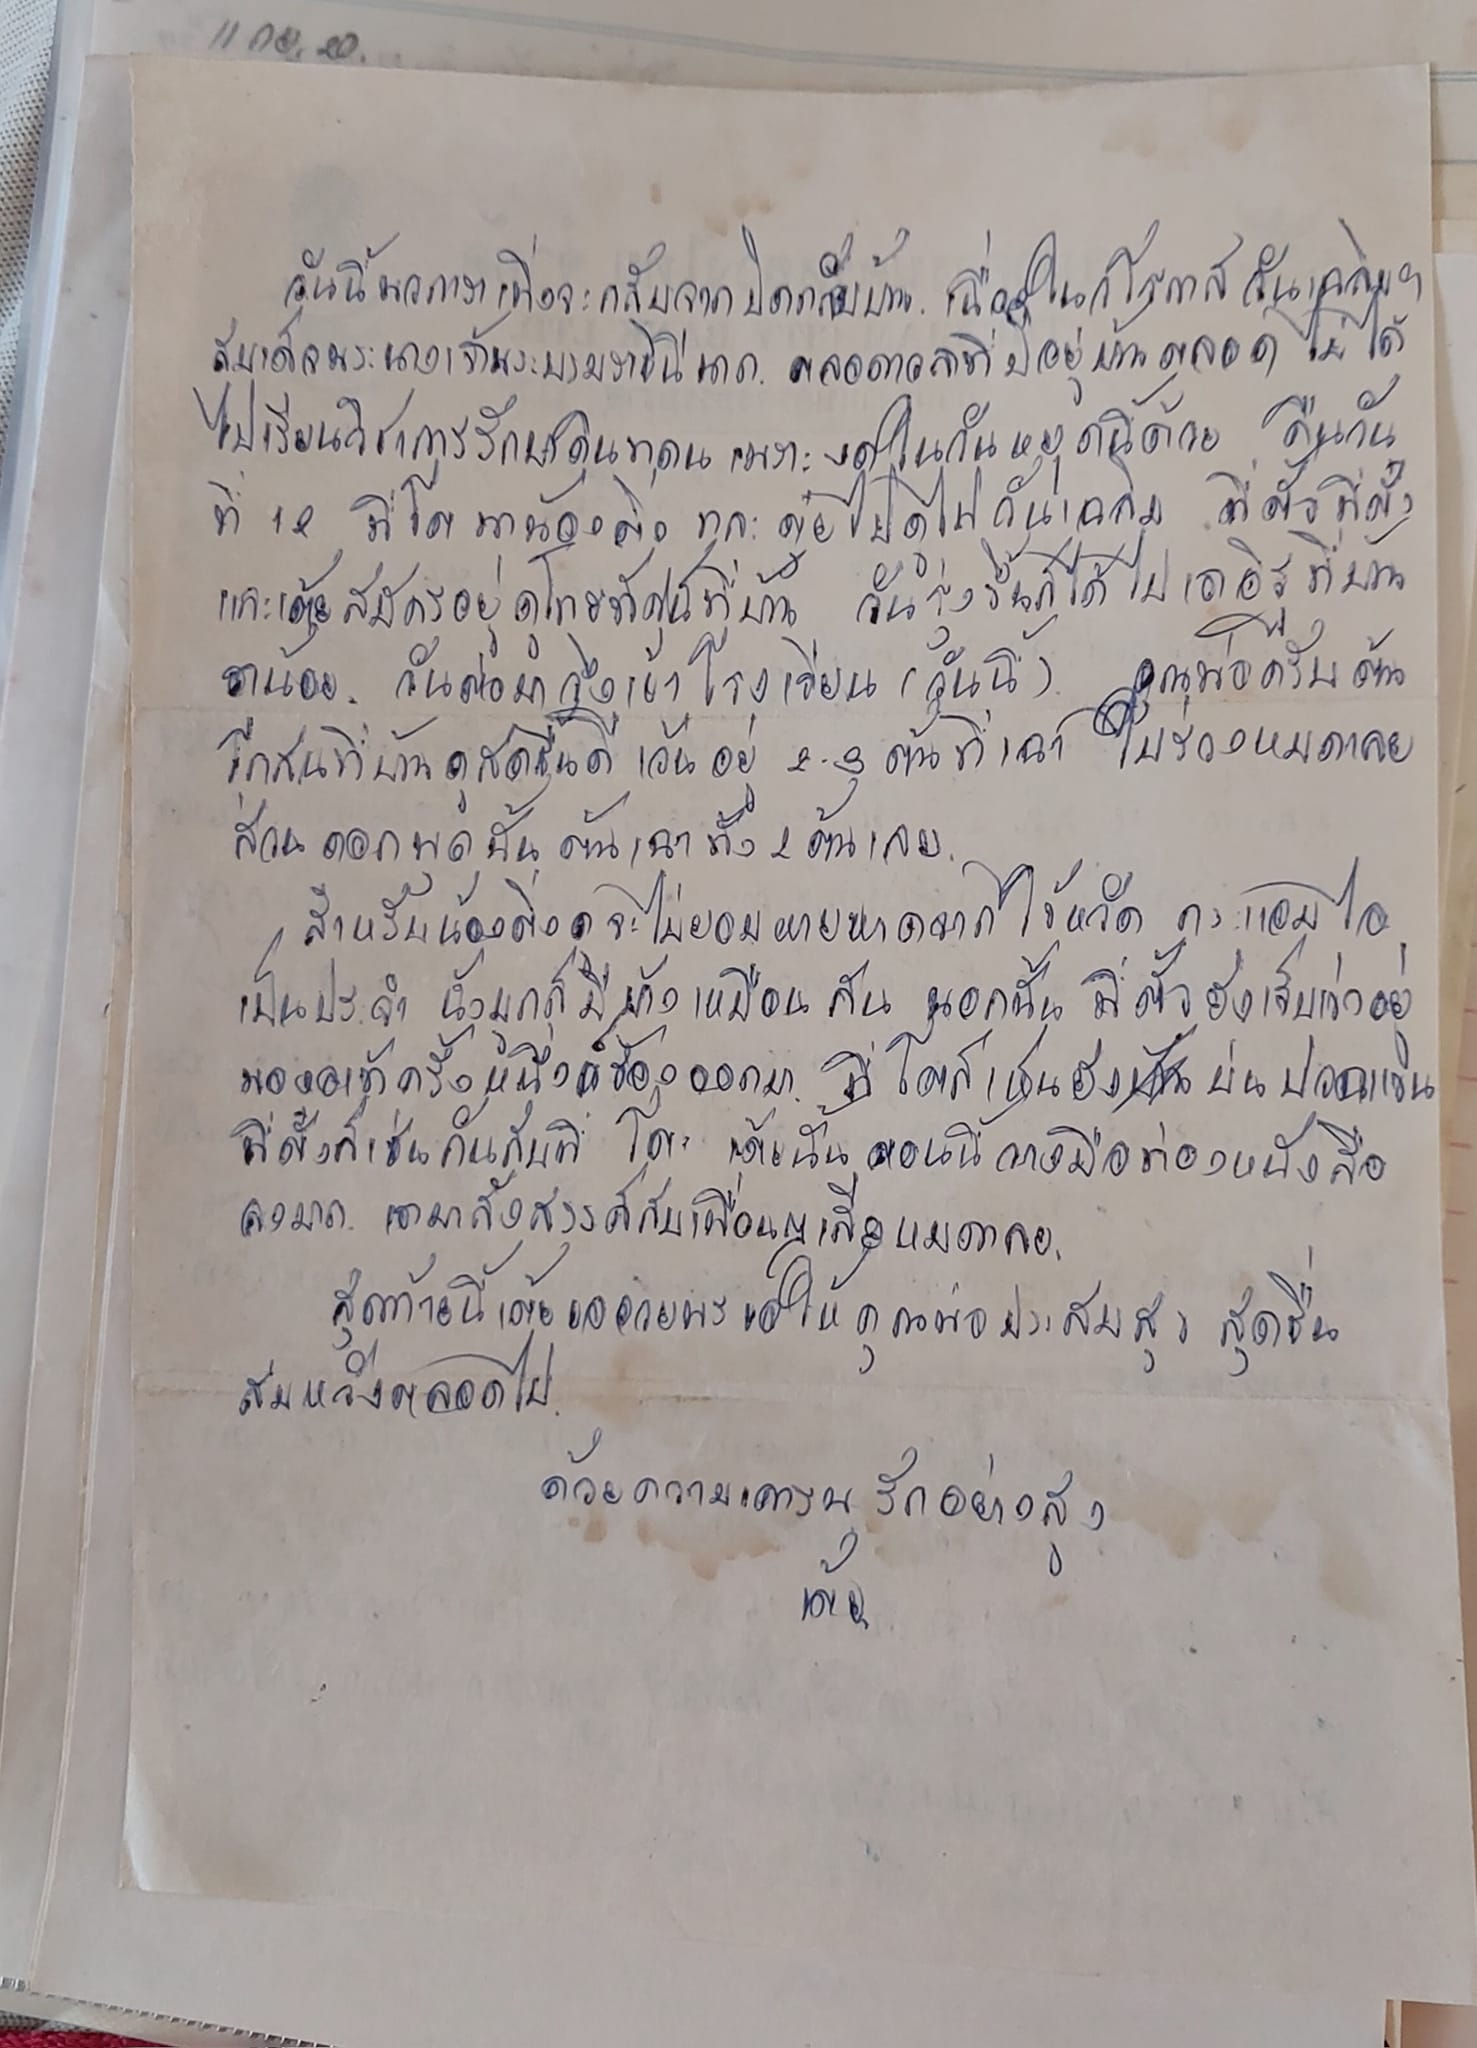 11 กย. 20.
วันนี้พวกเราเพิ่งจะกลับจากปิดกลับบ้าน. เนื่องในวโรกาสวันเฉลิมฯ
สมเด็จพระนางเจ้าพระบรมราชินีนาถ. ตลอดเวลาที่ไปอยู่บ้านตลอด ไม่ได้
ไปเรียนวิชาการรักษาดินแดน เพราะงดในวันหยุดนี้ด้วย คืนวัน
ที่ 12 พี่โต พาน้องติ่ง และ ตุ้ย ไปดูไฟวันเฉลิม พี่ตั้ว พี่ตั้ง
และเต้ยสมัครอยู่ดูโทรทัศน์ที่บ้าน วันรุ่งขึ้นก็ได้ไป ที่บ้าน
อาน้อย. วันต่อมาจึงเข้าโรงเรียน (วันนี้). คุณพ่อครับต้น
โกสนที่บ้านดูสดชื่นดี เว้นอยู่ 2-3 ต้นที่เฉา ใบร่วงหมดเลย
ส่วนดอกพุดนั้น ต้นเฉาทั้ง 2 ต้นเลย.
สำหรับน้องติ่งดูจะไม่ยอมหายขาดจากไข้หวัด กระแอมไอ
เป็นประจำ น้ำมูกก็มีบ้างเหมือนกัน นอกนั้น พี่ตั้วยังเจ็บเข่าอยู่
พองอเข้าครั้งหนึ่งก็ร้องออกมา. พี่โตก็เช่นบ่นปวดแขน
พี่ตั้งก็เช่นกันกับพี่โต. เต้ยนั้นตอนนี้วางมือท่องหนังสือ
ลงมาก. เอามาสังสรรค์กับเพื่อนฝูงเสียหมดเลย.
สุดท้ายนี้เต้ยขออวยพรขอให้คุณพ่อประสบสุข สุดชื่น
สมหวังตลอดไป.
ด้วยความเคารพรักอย่างสูง
เต้ย